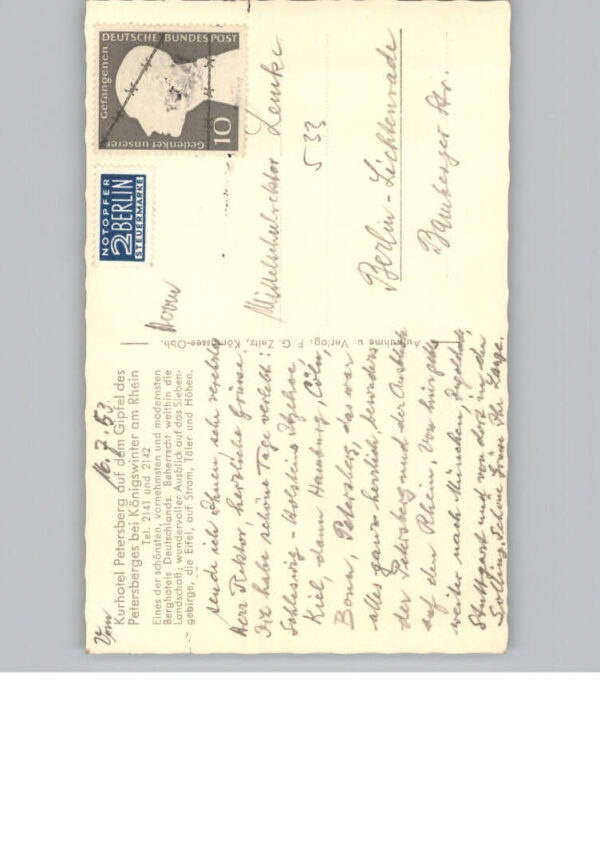 Vom 16.7.53.
Kurhotel Petersberg auf dem Gipfel des
Petersberges bei Königswinter am Rhein
Tel. 2141 und 2142
Eines der schönsten, vornehmsten und modernsten
Berghotels Deutschlands. Beherrscht weithin die
Landschaft; wundervoller Ausblick auf das Sieben-
gebirge, die Eifel, auf Strom, Täler und Höhen.
sende ich Ihnen, sehr verehrter
Herr Rektor, herzliche Grüsse.
Ich habe schöne Tage verlebt:
Schleswig-Holstein, Itzehoe,
Kiel, dann Hamburg, Cöln,
Bonn, Petersberg, das war
alles ganz herrlich, besonders
der Petersberg und der Ausblick
auf den Rhein. Von hier geht's
weiter nach München,
Stuttgart und von dort in den
Solling. Schöne Grüsse Ihr Lange.
Aufnahme u. Verlag: F. G. Zeitz, Königssee-Obb.
NOTOPFER
2 BERLIN
STEUERMARKE
DEUTSCHE BUNDESPOST
Gedenket unserer
Gefangenen
10
Herrn
Mittelschulrektor Lemke
533
Berlin-Lichtenrade
Bamberger Str.